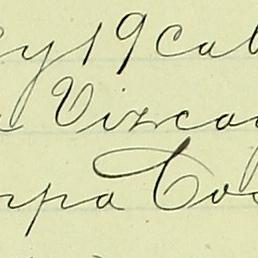 y 19 Cal
Vizcay
rpa Cos